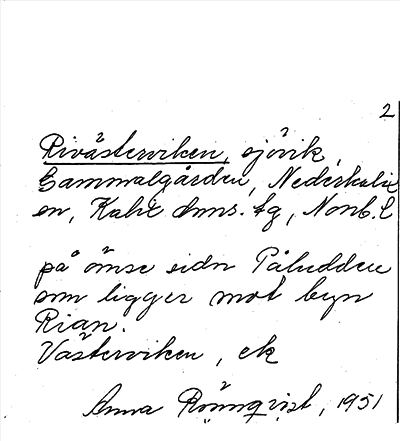 2
Rivästerviken, sjövik,
Gammalgården, Nederkalix
en, Kalix snms. tg, Norrb. L
på ömse sidn Påludden
som ligger mot byn
Rian.
Västerviken, ek
Anna Rönnqvist, 1951